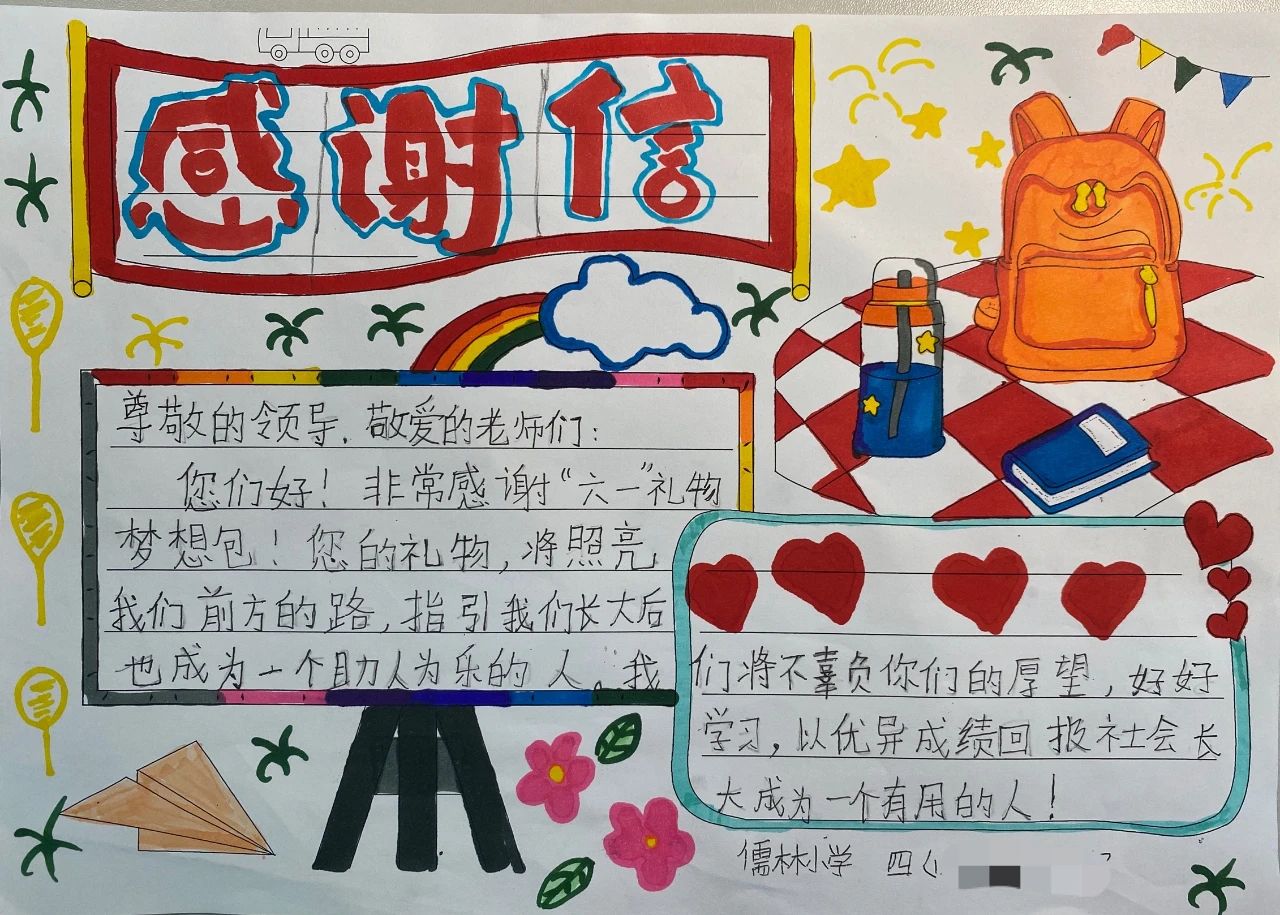 感谢信
尊敬的领导，敬爱的老师们：
您们好！非常感谢“六一”礼物
梦想包！您的礼物，将照亮
我们前方的路，指引我们长大后
也成为一个助人为乐的人。我
们将不辜负你们的厚望，好好
学习，以优异成绩回报社会长
大成为一个有用的人！
儒林小学 四（